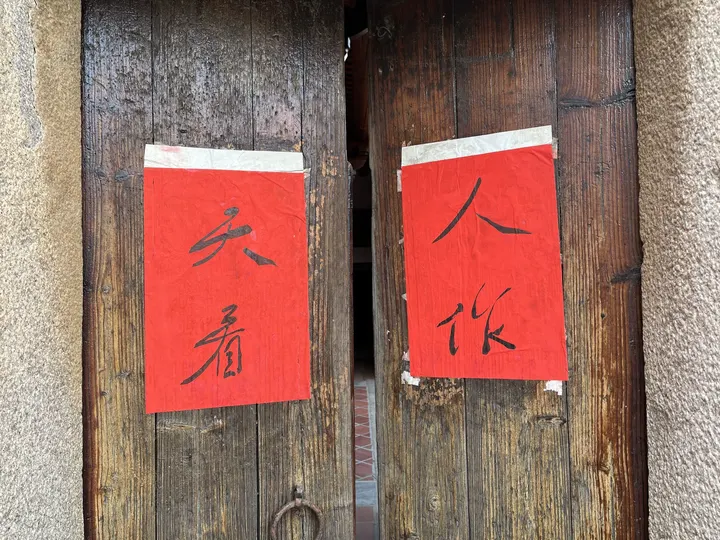 人作
天看